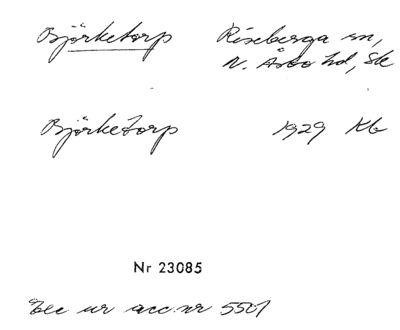 Björketorp Riseberga sn,
N. Åsbo hd, Sk
Björketorp 1929 Kb
Nr 23085
Exc ur acc. nr 5501